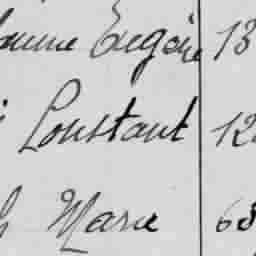 Eugène 13
Constant 12
Marie 6